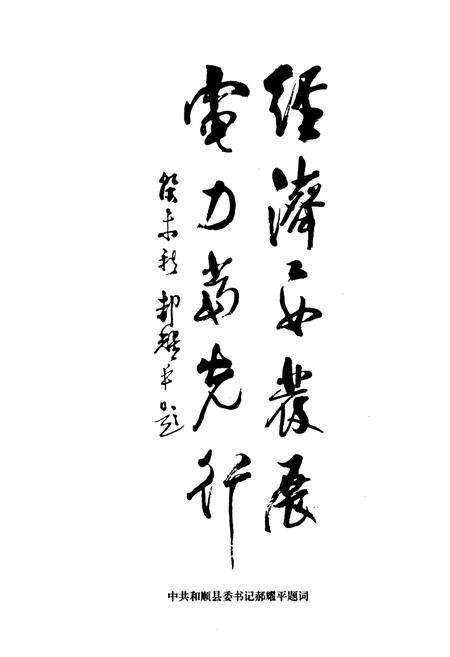 經濟要發展
電力當先行
癸未秋 郝耀平題
中共和顺县委书记郝耀平题词